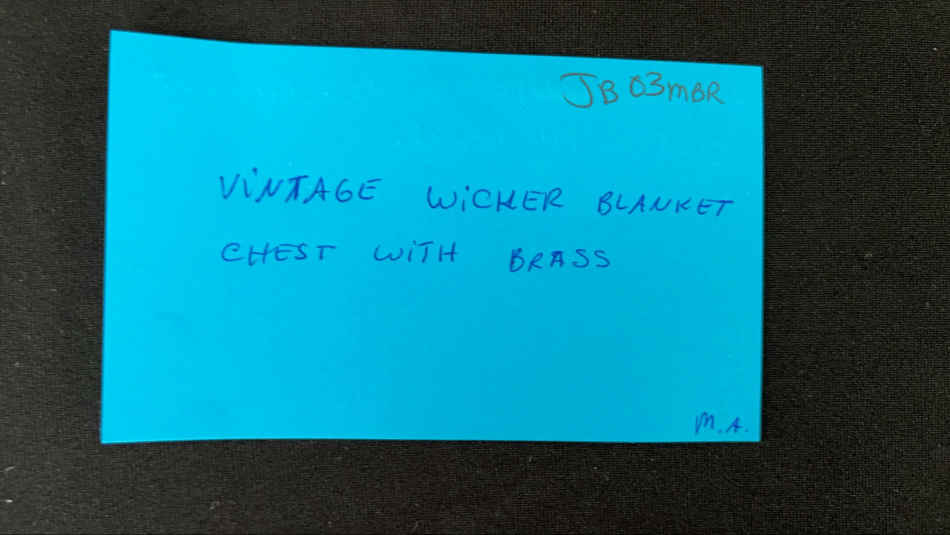 JB 03MBR
ViNTAGE WiCKER BLANKET
CHEST WiTH BRASS
M.A.